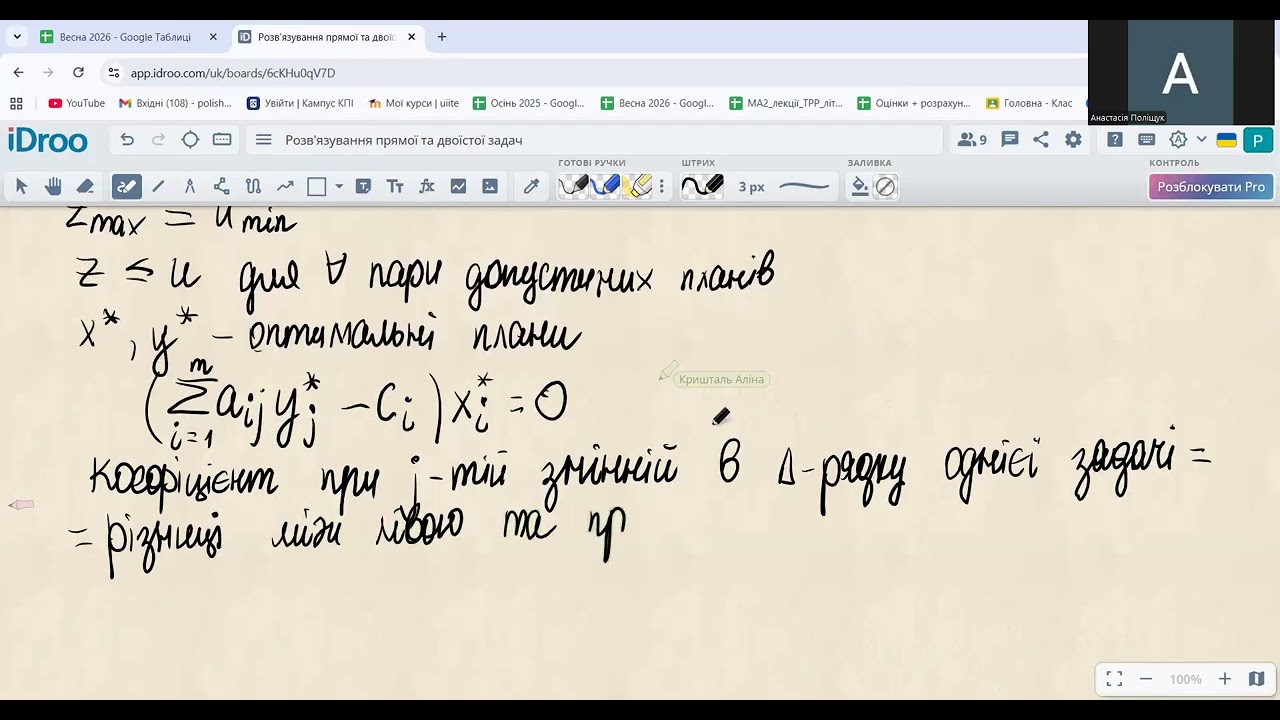 Весна 2026 - Google Таблиці
Розв'язування прямої та двоїс
app.idroo.com/uk/boards/6cKHu0qV7D
YouTube
Вхідні (108) - polish...
Увійти | Кампус КПІ
Мої курси | uiite
Осінь 2025 - Googl...
Весна 2026 - Googl...
МА2_лекції_ТРР_літ...
Оцінки + розрахун...
Головна - Клас
A
Анастасія Поліщук
iDroo
Розв'язування прямої та двоїстої задач
9
P
ГОТОВІ РУЧКИ
ШТРИХ
ЗАЛИВКА
КОНТРОЛЬ
3 px
Розблокувати Pro
Zmax = Umin
Z ≤ U для ∀ пари допустимих планів
x*, y* – оптимальні плани
(∑_{i=1}^{m} a_{ij} y_j* – c_i) x_i* = 0
Кришталь Аліна
Коефіцієнт при j-тій змінній в Δ-рядку однієї задачі =
= різниці між лівою та пр
100%